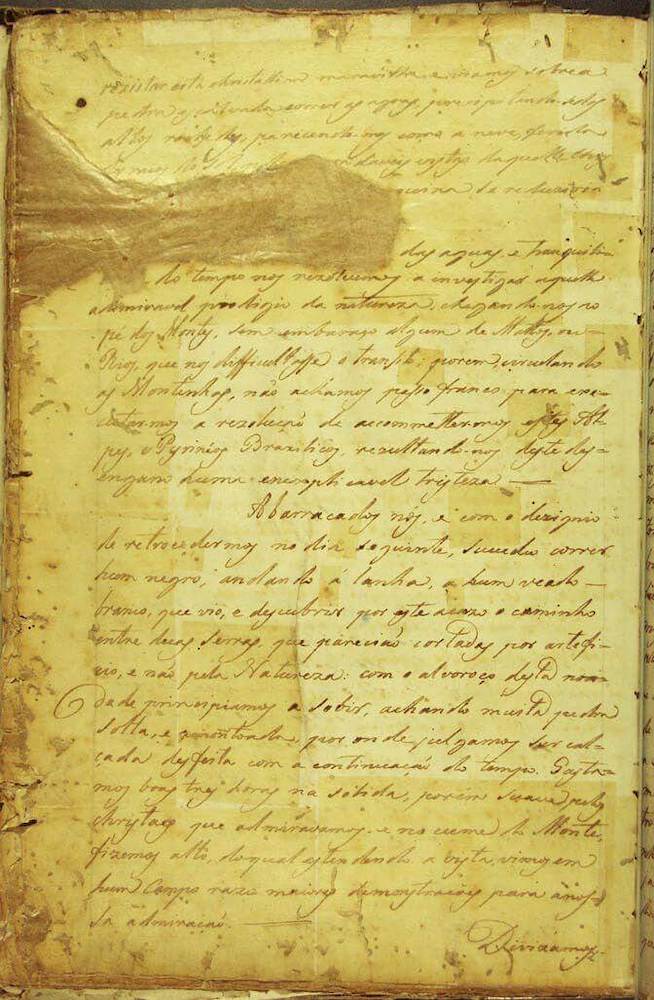 rezistar esta christallina maravilha e viamos sobre a
pedra escalvada correr as agoas, precipitando-se dos
altos rochedos, parecendo-nos como a neve, ferida
dos rayos do Sol
das aguas, e tranquili-
do tempo nos rezolvemos a investigar aquelle
admiravel prodigio da natureza, chegando-nos ao
pé dos Montes, sem embaraço algum de Mattos, ou
Rios, que nos difficultasse o transito; porem, circulando
as Montanhas, não achamos passo franco, para exe-
cutarmos a rezolução de accommettermos estes Al-
pes, e Pyrinéos Brazilicos, rezultando-nos deste des-
engano huma inexplicavel tristeza —
Abarracados nós, e com o dezignio
de retrocedermos no dia seguinte, succedeo correr
hum negro, andando á lenha, a hum veado
branco, que vio, e descubrir por este acazo o caminho
entre duas serras, que parecião cortadas por artifi-
cio, e não pela Natureza: com o alvoroço desta novi-
dade principiamos a sobir, achando muita pedra
solta, e amontoada por onde julgamos ser cal-
çada desfeita com a continuação do tempo. Gasta-
mos boas tres horas na sobida, porém suave pelos
christaes que admiravamos, e no cume do Monte,
fizemos alto, do qual estendendo a vista, vimos em
hum Campo razo maiores demonstracoẽs para a nos-
sa admiração. —
Divizamos